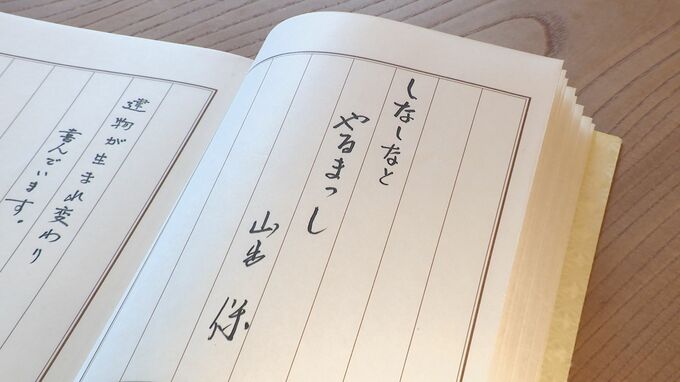 しなしなと
やるまっし
山出 保
建物が生まれ変わり
喜んでいます。